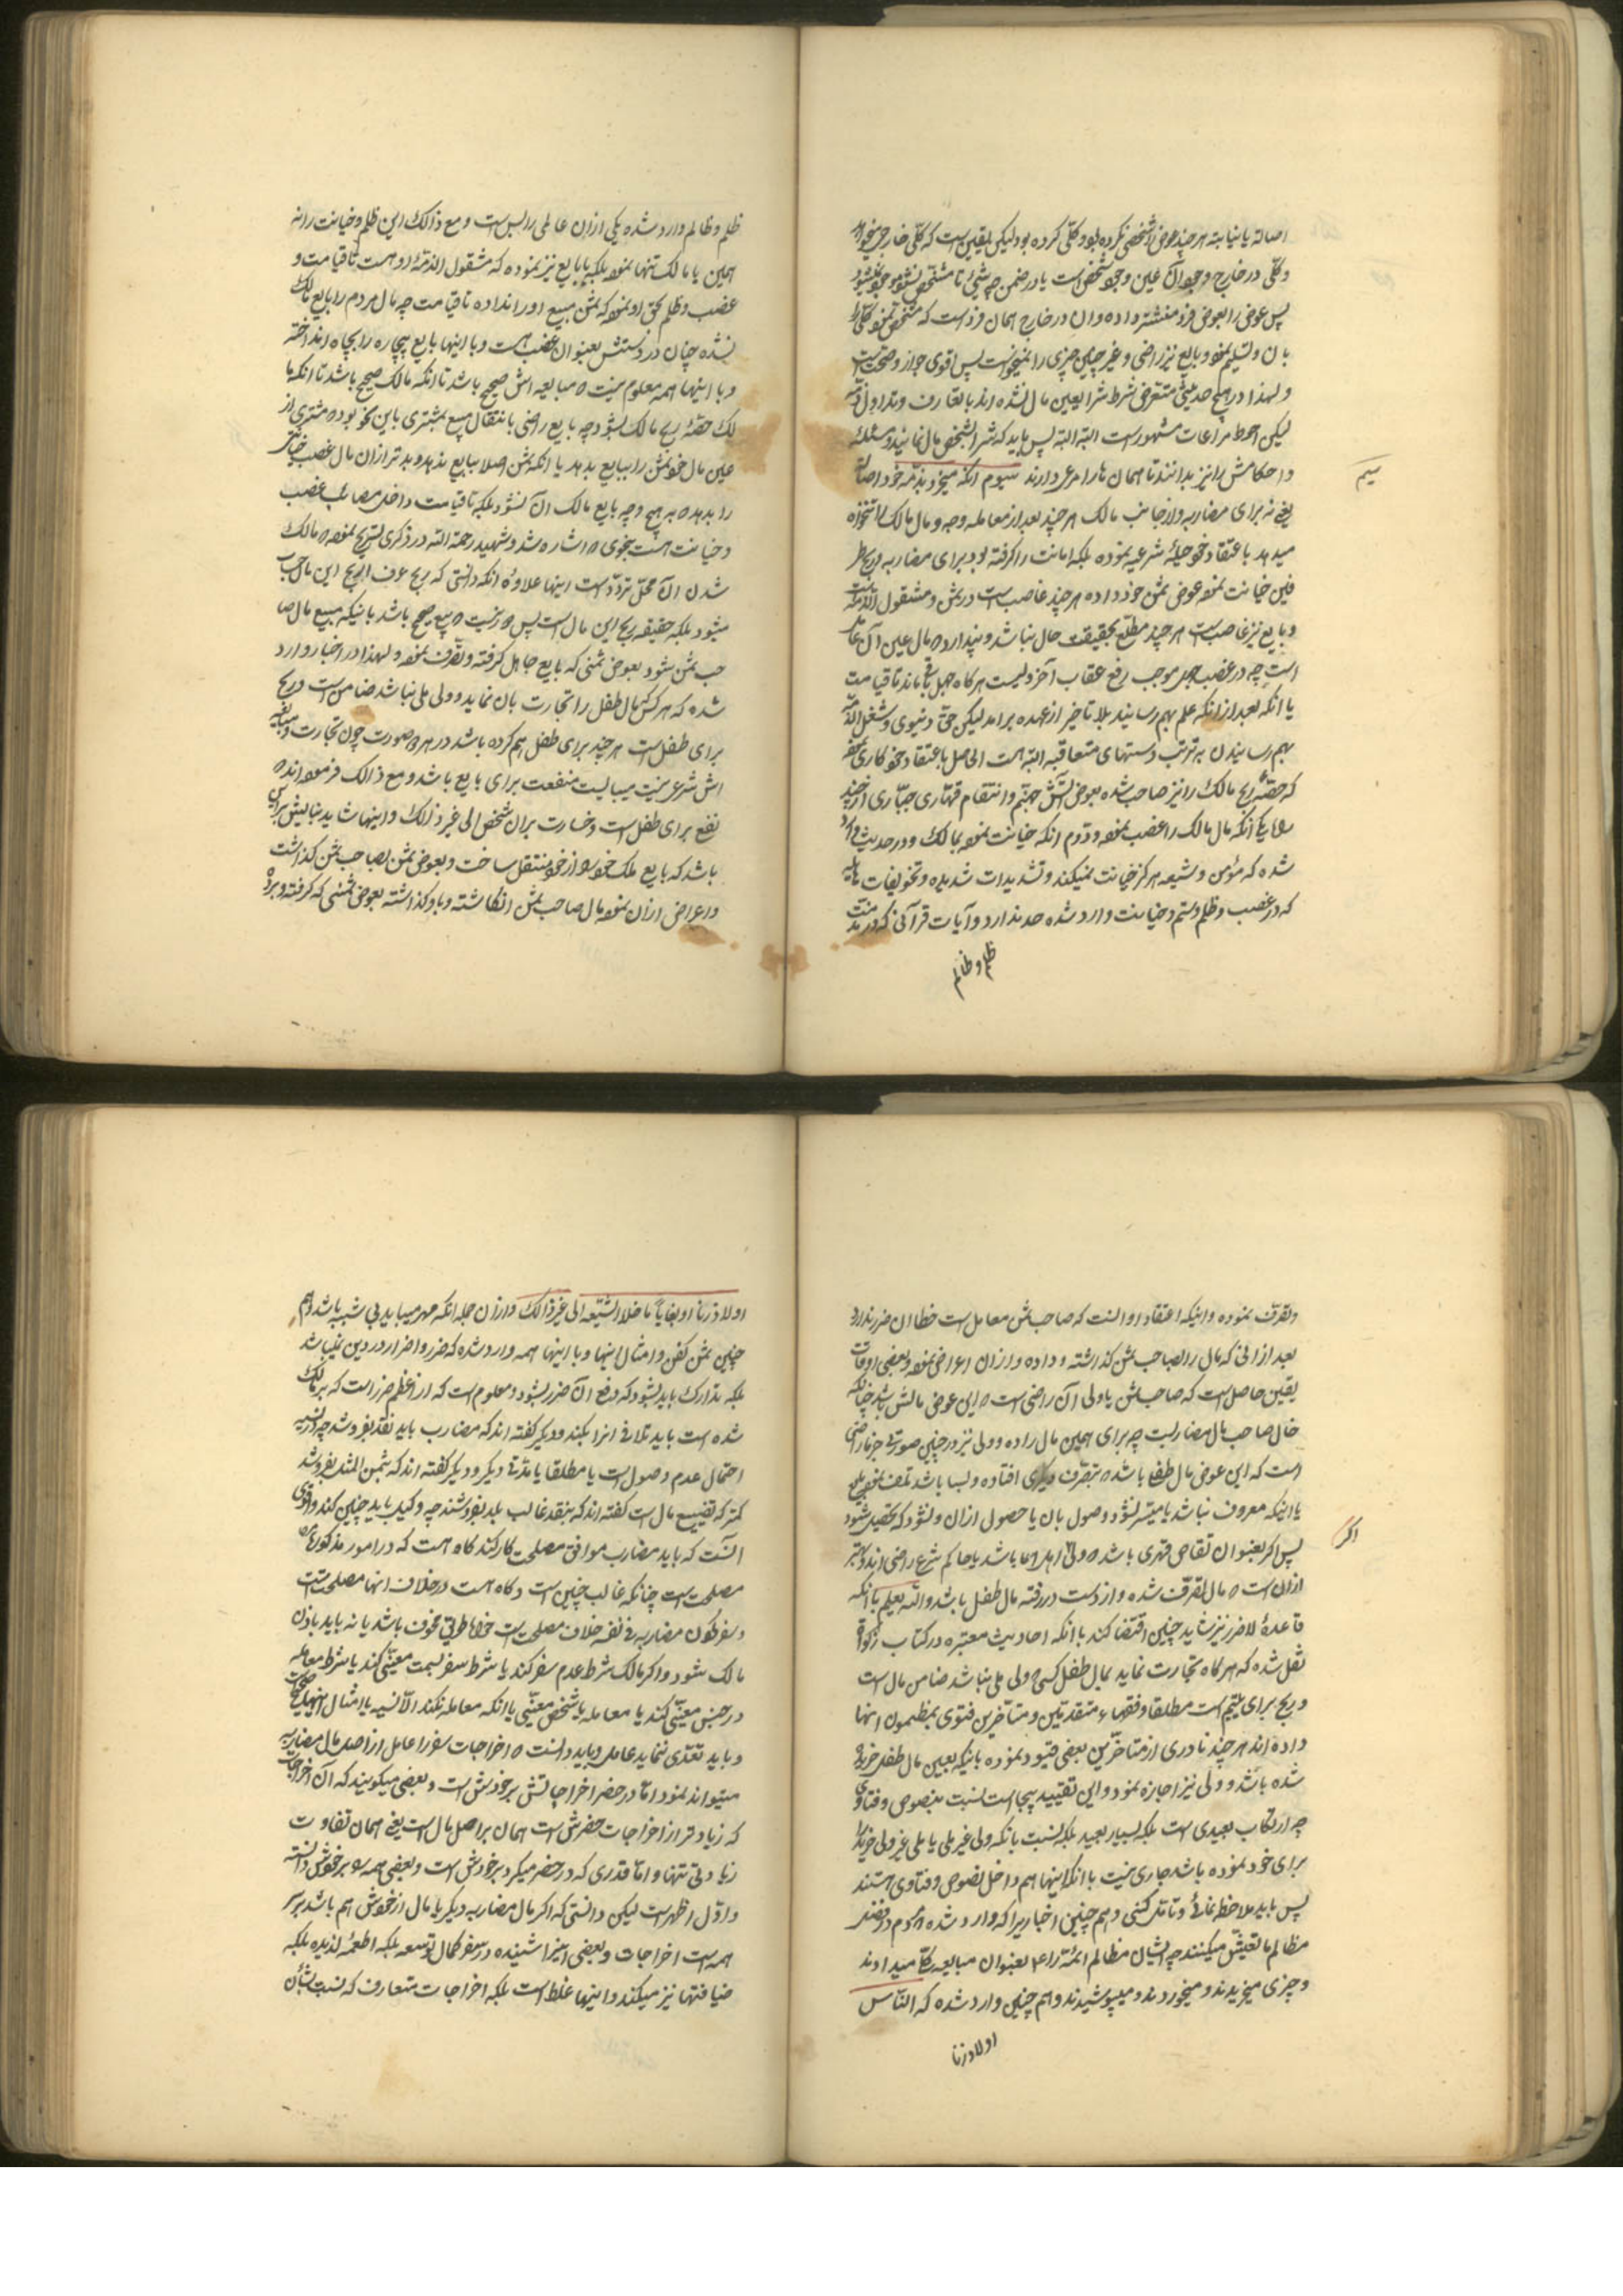 اصالة یا نیابته هر چند عوض را شخصی نکرده بود و کلّی کرده بود لیکن یقین است که کلّی خارجی نمیخواهد
و کلّی در خارج وجود آن عین وجود شخص است یا در ضمن چه شیئ تا متشخص نشود موجود نمیشود
پس عوض را بعوض فرد منتشر داده و ان در خارج همان فرد است که متشخص نموده کلّی را
بان و تسلیم نموده و بایع نیز راضی و غیر چنین چیزی را نمیخواست پس اقوی جواز و صحت است
و لهذا در هیچ حدیثی متعرض شرط شرا بعین مال نشده اند با تعارف و تداول
لیکن احوط مراعات مشهور است البته البته پس باید که شرا بشخص مال نمایند و مسئله
و احکامش را نیز بدانند تا همان ها را مرعی دارند سیوم انکه میخرد بذمّه خود اصالة
سیم
یعنی نه برای مضاربه و از جانب مالک هر چند بعد از معامله وجه و مال مالک را تنخواه
میدهد باعتقاد خود حیلهٔ شرعیه نموده بلکه امانت را گرفته بود برای مضاربه و ربح
فلهذا خیانت نموده عوض ثمن خود داده هر چند غاصب است در ثمن و مشغول الذمّه است
و بایع نیز غاصب است هر چند مطلع بحقیقت حال نباشد و پندارد که مال عین آن عامل
است چه در غصب جهل موجب رفع عقاب آخرولیست هر گاه جهل باقی باند تا قیامت
یا انکه بعد از انکه علم بهم رسانید بلا تاخیر از عهده برامد لیکن حق دنیوی و شغل الذمّه
بهم رسانیدن به ترتب دستهای متعاقبه البته هست الحاصل باعتقاد خود کاری کرده
که حصّهٔ ربح مالک را نیز صاحب شده بعوض آتش جهنّم و انتقام قهّاری جبّاری از چند
راه یکی انکه مال مالک را غصب نموده و دوّم انکه خیانت نموده بمالک و در حدیث وارد
شده که مؤمن و شیعه هرگز خیانت نمیکند و تشدیدات شدیده و تخویفات هائله
که در غصب و ظلم و ستم و خیانت وارد شده حد ندارد و آیات قرآنی که در مذمّت
ظلم و ظالم
ظلم و ظالم وارد شده یکی از ان عالمی را بس است و مع ذالک این ظلم و خیانت را نه
همین با مالک تنها نموده بلکه با بایع نیز نموده که مشغول الذمّهٔ او هست تا قیامت و
غصب و ظلم بحق او نموده که ثمن مبیع او را نداده تا قیامت چه مال مردم را بایع مالک
نشده چنان در دستش بعنوان غصب است و با اینها بایع بیچاره را بچاه انداخته
و با اینها همه معلوم نیست که مبایعه اش صحیح باشد تا انکه مالک صحیح باشد تا انکه ما
لک حصّهٔ ربح مالک بشود چه بایع راضی بانتقال مبیع بمشتری باین نحو بوده که مشتری از
عین مال خود ثمن را ببایع بدهد یا انکه ثمن اصلا ببایع ندهد و بدتر از ان مال غصب خیانتی
را بدهد که به هیچ وجه بایع مالک آن نشود بلکه تا قیامت داخل مصائب غصب
و خیانت هست بنحوی که اشاره شد و شهید رحمة الله در ذکری تصریح نموده که مالک
شدن ان محل تردّد است اینها علاوهٔ انکه دانستی که ربح عرف الربح این مال حساب
میشود بلکه حقیقه ربح این مال است پس که نیست که بیع صحیح باشد بانیکه مبیع مال صا
حب ثمن شود بعوض ثمنی که بایع جاهل گرفته و تصرّف نموده و لهذا در اخبار وارد
شده که هر کس که مال طفل را تجارت بان نماید و ولی ملی نباشد ضامن است و ربح
برای طفل است هر چند برای طفل هم کرده باشد در هر دو صورت چون تجارت و مبایعه
اش شرعی نیست میبایست منفعت برای بایع باشد و مع ذالک فرموده اند که
نفع برای طفل است و خسارت بران شخص الی غیر ذالک و اینها شاید بنایش براین
باشد که بایع ملک خود را از خود منتقل ساخت و بعوض ثمن بصاحب ثمن گذاشت
و اعراض از ان نموده مال صاحب ثمن انگاشته و باو گذاشته بعوض ثمنی که گرفته و برده
و تصرّف نموده و اینکه اعتقاد او اینست که صاحب ثمن معامل است خطا ان ضرر ندارد
بعد از انی که مال را بصاحب ثمن گذاشته و داده و از ان اعراض نموده و بعضی اوقات
یقین حاصل است که صاحبش یا ولی آن راضی است که این عوض مالش باشد چنانکه
حال صاحب مال مضاربست چه برای همین مال را داده و ولی نیز در چنین صورتی جزما راضی
است که این عوض مال طفل باشد که بتصرف دیگری افتاده و بسا باشد تلف نموده
یا اینکه معروف نباشد یا میسّر نشود وصول بان یا حصول از ان و نشود که تحصیل شود
پس اگر بعنوان تقاص قهری باشد که ولی اهل ان باشد یا حاکم شرع راضی اند و بهتر
اگر
از ان است که مال تصرّف شده و از دست در رفته مال طفل باشد و الله یعلم با انکه
قاعدهٔ لا ضرر نیز شاید چنین اقتضا کند با انکه احادیث معتبره در کتاب زکوة
نقل شده که هر گاه تجارت نماید بمال طفل کسی که ولی ملی نباشد ضامن مال است
و ربح برای یتیم است مطلقا و فقهاء متقدّمین و متأخّرین فتوی بمضمون انها
داده اند هر چند نادری از متاخّرین بعضی قیود نموده باینکه بعین مال طفل خریده
شده باشد و ولی نیز اجازه نمود و این تقیید بیجا است نسبت بنصوص و فتاوی
چه ارتکاب بعیدی است بلکه بسیار بعید بلکه نسبت بانکه ولی غیر ملی یا ملی غیر ولی خود
برای خود نموده باشد جاری نیست با انکه اینها هم داخل نصوص و فتاوی هستند
پس باید ملاحظه نمائی و تأمّل کنی و هم چنین اخباریرا که وارد شده که مردم در قصد
مظالم ما تعیّش میکنند چه ایشان مظالم ائمّه را ع بعنوان مبایعه کلا میدادند
و چیزی میخریدند و میخوردند و میپوشیدند و هم چنین وارد شده که النّاس
اولاد زنا
اولاد زنا او بغایا ما خلا الشیعه الی غیر ذالک و از ان جمله انکه مهر میباید بی شبه باشد و هم
چنین ثمن کفن و امثال اینها و با اینها همه وارد شده که ضرر و اضرار در دین نمیباشد
بلکه تدارک باید بشود که دفع آن ضرر بشود و معلوم است که از اعظم ضرر است که بر مالک
شده است باید تلافی انرا بکنند و دیگر گفته اند که مضارب باید نقد بفروشد چه در نسیه
احتمال عدم وصول است یا مطلقا یا مدّتی دیگر و دیگر گفته اند که بثمن المثل بفروشد
کمتر که تضییع مال است گفته اند که بنقد غالب بلد بفروشند چه وکیل باید چنین کند و اقوی
انست که باید مضارب موافق مصلحت کار کند گاه هست که در امور مذکوره
مصلحت است چنانکه غالب چنین است و گاه هست در خلاف انها مصلحت است
و سفر چون مضاربه فی نفسه خلاف مصلحت است خواه طریق مخوف باشد یا نه باید باذن
مالک شود و اگر مالک شرط عدم سفر کند یا شرط سفر بسمت معیّنی کند یا شرط معامله
در جنس معیّنی کند یا معامله با شخص معیّنی یا انکه معامله نکند الّا نسیه یا امثال اینها
و باید تعدّی ننماید عامل و باید دانست که اخراجات سفر را عامل از اصل مال مضاربه
میتواند نمود امّا در حضر اخراجاتش بر خودش است و بعضی میگویند که آن اخراجات
که زیادتر از اخراجات حضرش است همان بر اصل مال است یعنی همان تفاوت
زیادتی تنها و امّا قدری که در حضر میکرد بر خودش است و بعضی همه را بر خودش دانسته
و اوّل اظهر است لیکن دانستی که اگر مال مضاربه دیگر یا مال از خودش هم باشد بر سر
همه است اخراجات و بعضی اینرا شنیده در سفر کمال توسعه بلکه اطعمهٔ لذیذه بلکه
ضیافتها نیز میکند و اینها غلط است بلکه اخراجات متعارف که نسبت بشأن